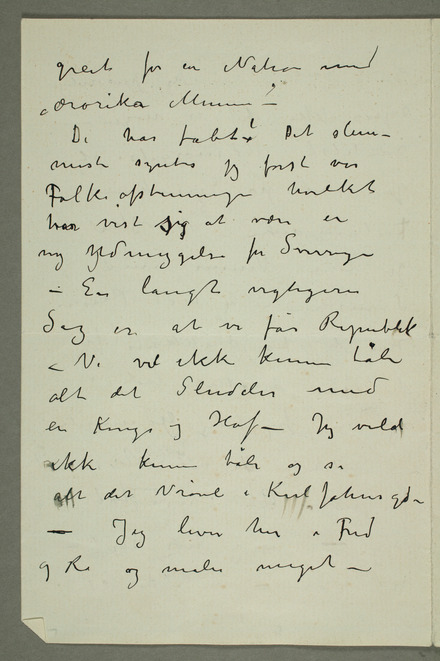 greit for en Nation med
ærorika Minner!–
De har tabt! Det slem-
meste syntes jeg først var
Folkeafstemningen hvilket
har vist sig at være en
ny Ydmygelse for Sverige
– En langt vigtigere
Sag er at vi får Republik
– Vi vil ikke kunne tåle
alt det Sludder med
en Konge og Hof – Jeg vilde
ikke kunne tåle og se
alt det Vrøvl i Karl Johans gd–
– Jeg lever her i Fred
og Ro og maler meget –